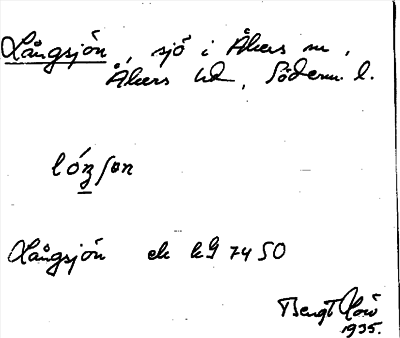 Långsjön, sjö i Åkers sn,
Åkers hd, Söderm. l.
lóŋʃøn
Långsjön ek kg 74 50
Bengt
1935.